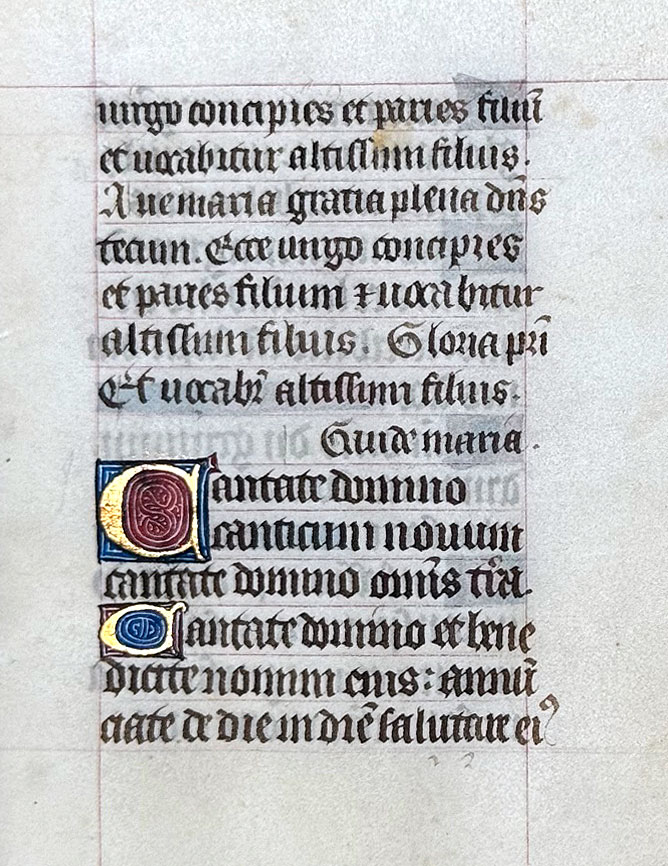 uirgo concipies et paries filiū
et uocabitur altissimi filius.
Aue maria gratia plena dn̄s
tecum. Ecce uirgo concipies
et paries filium ⁊ uocabitur
altissimi filius. Gloria pr̄i
Et uocabr̄ altissimi filius.
Gaude maria.
Cantate domino
canticum nouum
cantate domino omīs tr̄a.
Cantate domino et bene
dicite nomini eius: annū
ciate de die in diē salutare eiꝰ